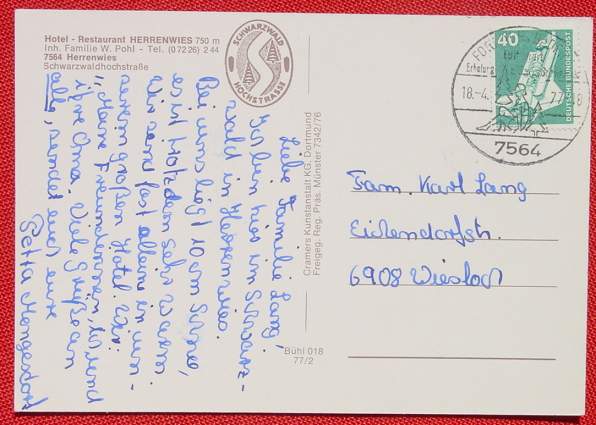 Hotel - Restaurant HERRENWIES 750 m
Inh. Familie W. Pohl - Tel. (07226) 244
7564 Herrenwies
Schwarzwaldhochstraße
SCHWARZWALD
HOCHSTRASSE
Liebe Familie Lang,
Ich bin hier im Schwarz-
wald in Herrenwies.
Bei uns liegt 10 cm Schnee,
es ist trotzdem sehr warm
Wir sind fast alleine in un-
serem großen Hotel. Wir:
"Meine Freundinnen, ich und
ihre Oma. Viele Grüße an
alle, sendet euch eure
Petra
Cramers Kunstanstalt KG. Dortmund
Freigeg. Reg. Präs. Münster 7342/76
Bühl 018
77/2
40
DEUTSCHE BUNDESPOST
18.-4.
77
18
7564
Fam. Karl Lang
Eichendorfstr.
6908 Wiesloch